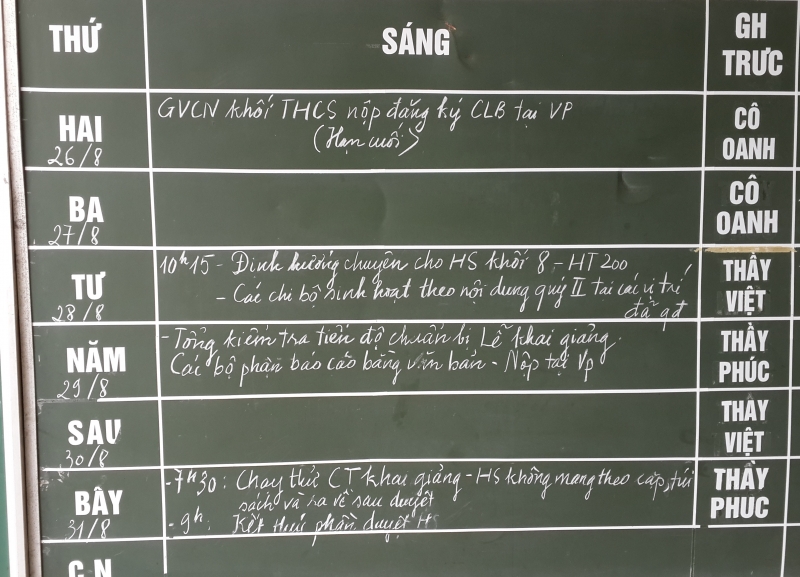 THỨ SÁNG GH TRỰC
HAI 26/8 GVCN khối THCS nộp đăng ký CLB tại VP CÔ OANH
(Hạn cuối)
BA 27/8 CÔ OANH
TƯ 28/8 10h15 - Định hướng chuyên cho HS khối 8 - HT 200 THẦY VIỆT
- Các chi bộ sinh hoạt theo nội dung quý II tại các vị trí
đã qđ
NĂM 29/8 - Tổng kiểm tra tiến độ chuẩn bị Lễ khai giảng. THẦY PHÚC
Các bộ phận báo cáo bằng văn bản - Nộp tại Vp
SAU 30/8 THAY VIỆT
BẢY 31/8 - 7h30: Chạy thử CT khai giảng - HS không mang theo cặp, túi THẦY PHUC
sách và ra về sau duyệt
- 9h: Kết thúc phần duyệt HS
C.N